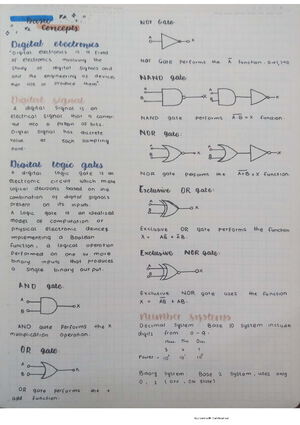 Basic
Concepts
Digital electronics
"Digital electronics is a field
of electronics involving the
study of digital signals and
and the engineering of devices
that use or produce them".
Digital signal
A digital signal is an
electrical signal that is
into a pattern of bits.
Digital signal has discrete
value at each sampling
point.
Digital logic gates
A digital logic gate is an
electronic circuit which make
logical decisions based on the
combination of digital signals
present on its inputs.
A logic gate is an idealised
model of computation or
physical electronic devices
implementing a Boolean
function, a logical operation
performed on one or more
binary inputs that produces
a single binary output.
AND gate:
A
B
X
AND gate performs the X
multiplication operation.
OR gate:
A
B
X
OR gate performs the +
add function.
NOT Gate:
A
X
NOT Gate performs the A̅ function
NAND gate:
A
B
X
A
B
X
NAND gate performs A̅.̅B̅ = X function.
NOR gate:
A
B
X
A
B
X
NOR gate performs the A̅+̅B̅ = X function.
Exclusive OR gate:
A
B
X
Exclusive OR gate performs the function
X = AB̅ + A̅B.
Exclusive NOR gate:
A
B
X
Exclusive NOR gate uses the function
X = A̅B̅ + AB.
Number systems
Decimal System: Base 10 system include
digits from 0-9.
Power = 10² 10¹ 10⁰
Binary System: Base 2 system, uses only
0, 1 (